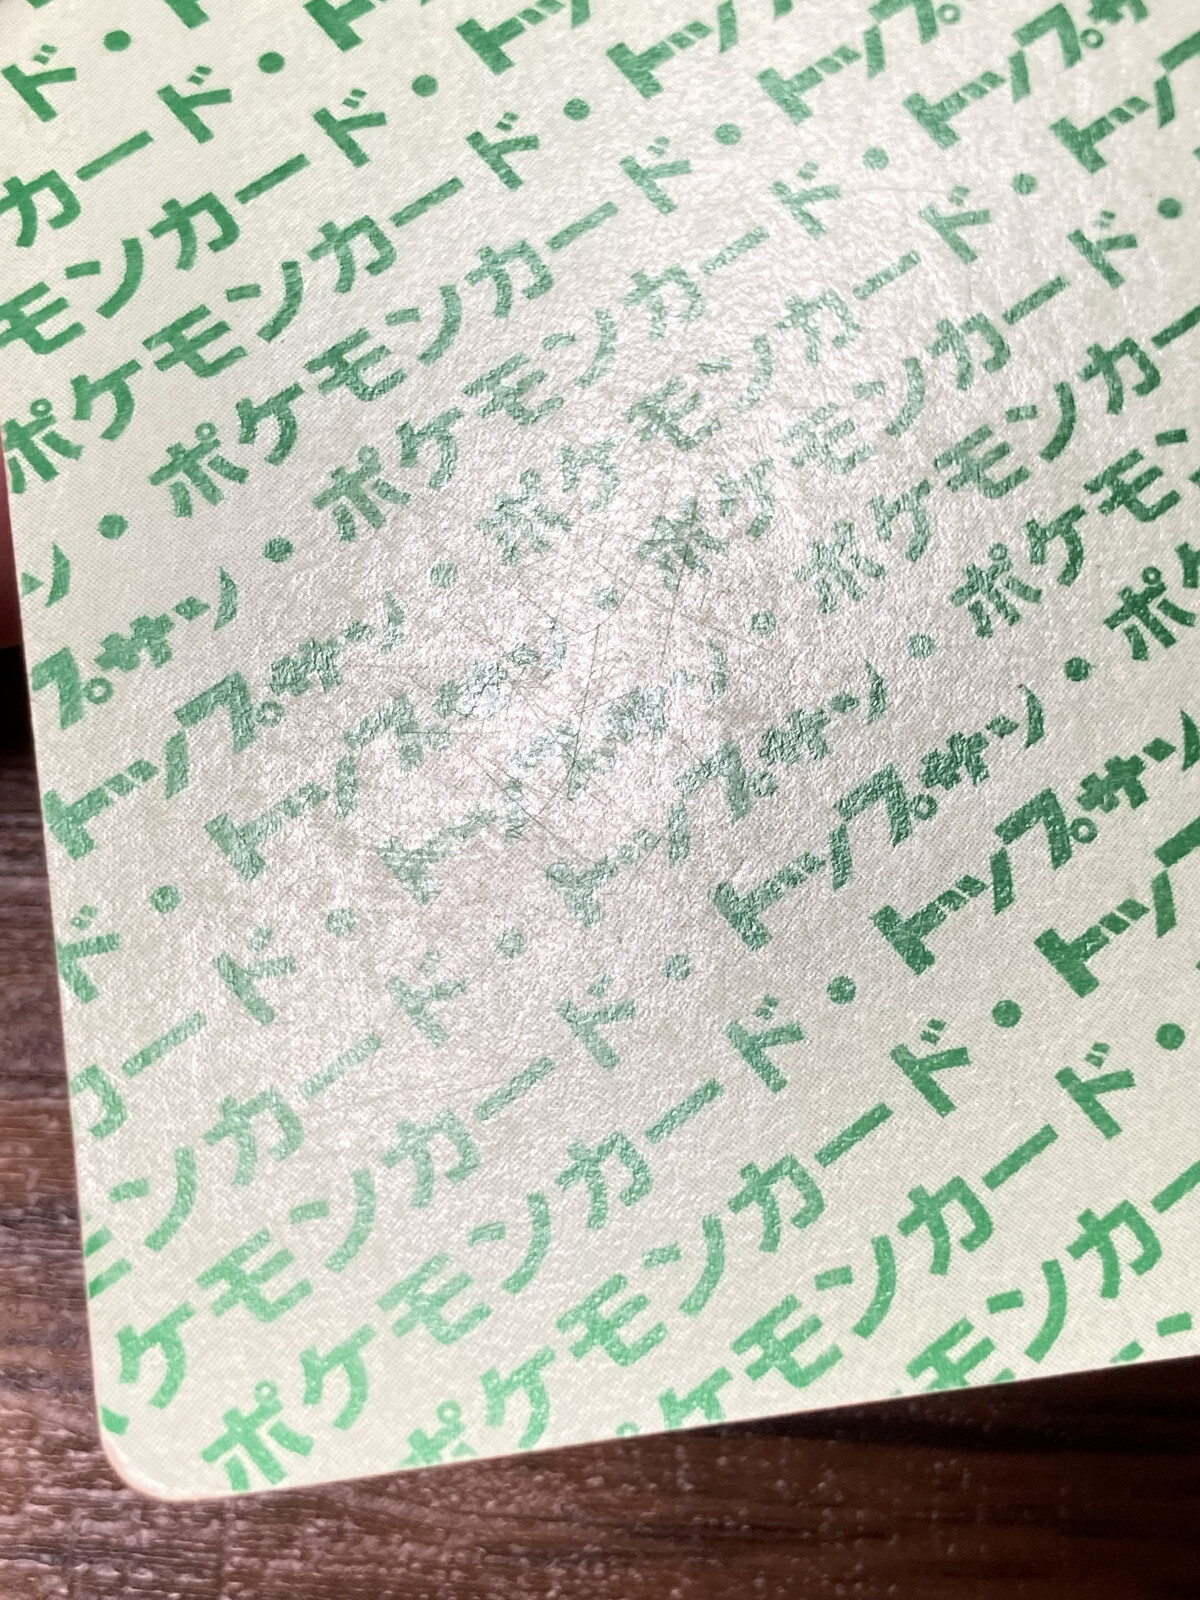 ド・ト
カード・ト
モンカード・トッ
ポケモンカード・トッ
ン・ポケモンカード・トップ
プサン・ポケモンカード・トップサ
トップサン・ポケモンカード・トッ
ド・トップサン・ポケモンカード・
カード・トップサン・ポケモンカー
モンカード・トップサン・ポケモン
ケモンカード・トップサン・ポケ
ポケモンカード・トップサン
ポケモンカード・トッ
ケモンカード・
モンカー